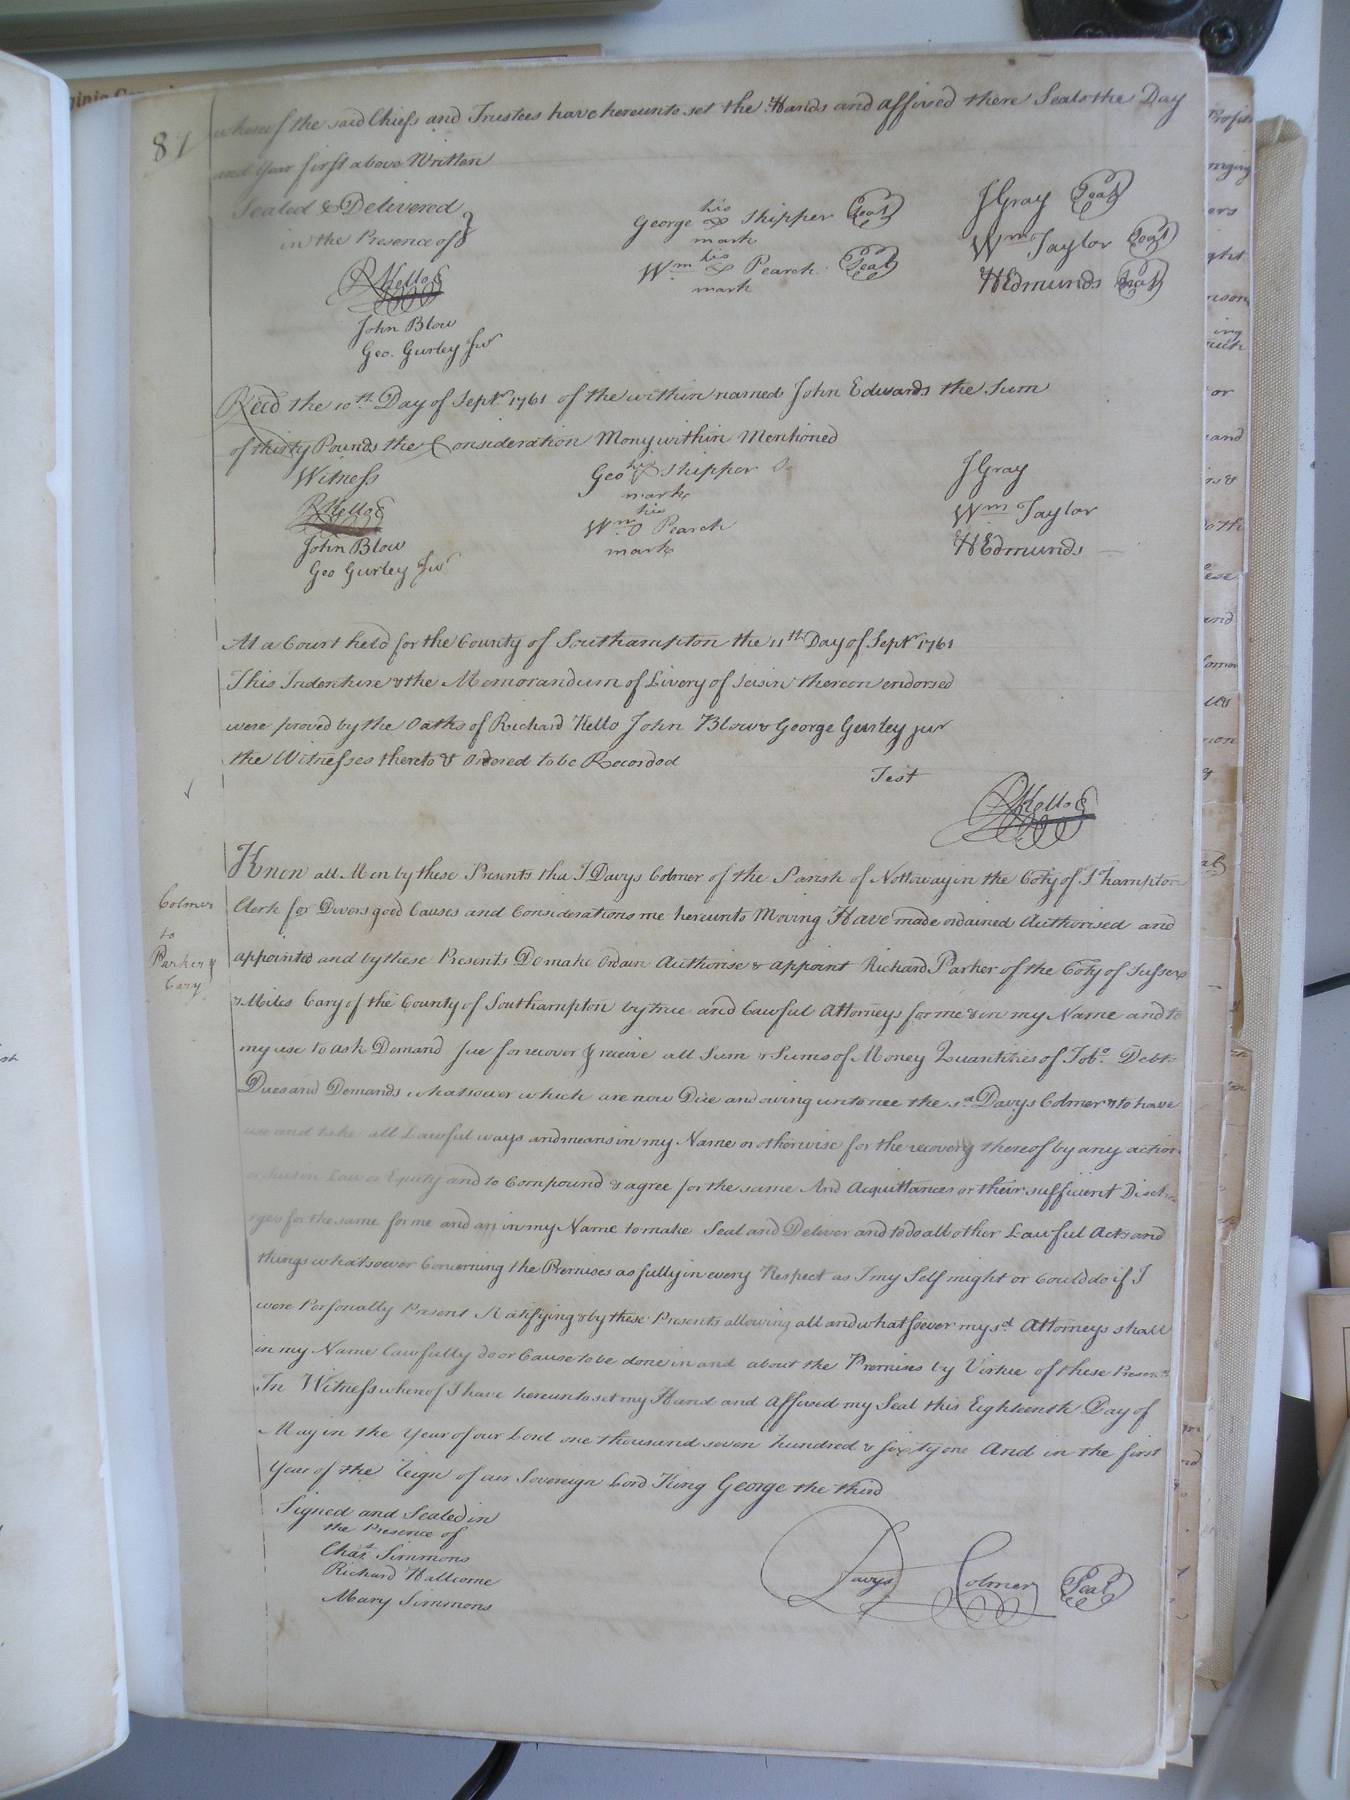 87
whereof the said Chiefs and Trustees have hereunto set the Hands and affixed there Seals the Day
and Year first above Written
Sealed & Delivered
in the Presence of
RKello
John Blow
Geo. Gurley Jur
his
George Skipper Seal
mark
his
Wm Pearch Seal
mark
JGray Seal
Wm Taylor Seal
HEdmunds Seal
Recd the 10th Day of Septr 1761 of the within named John Edwards the Sum
of thirty Pounds the Consideration Mony within Mentioned
Witness
RKello
John Blow
Geo Gurley Jur
his
Geo Skipper
mark
his
Wm Pearch
mark
JGray
Wm Taylor
HEdmunds
At a Court held for the County of Southampton the 11th Day of Septr 1761
This Indenture & the Memorandum of Livery of Seisin thereon endorsed
were proved by the Oaths of Richard Kello John Blow & George Gurley jur
the Witnesses thereto & Ordered to be Recorded
Test
RKello
Colmer
to
Parker &
Cary
Know all Men by these Presents tha I Davys Colmer of the Parish of Nottoway in the Coty of S hampton
Clerk for Divers good Causes and Considerations me hereunto Moving Have made ordained Authorised and
appointed and by these Presents Do make Ordain Authorise & appoint Richard Parker of the Coty of Sussex
& Miles Cary of the County of Southampton by true and Lawful Attorneys for me & in my Name and to
my use to ask Demand Sue for recover & receive all Sum & Sums of Money Quantities of Tobo. Debts
Dues and Demands whatsoever which are now Due and owing unto mee the sd Davys Colmer & to have
use and take all Lawful ways and means in my Name or otherwise for the recovery thereof by any action
or Suit in Law or Equity and to Compound & agree for the same And Acquittances or their sufficient Discha
rges for the same for me and an in my Name to make Seal and Deliver and to do all other Lawful Acts and
things whatsoever Concerning the Premises as fully in every Respect as I my Self might or Could do if I
were Personally Present Ratifying & by these Presents allowing all and whatsoever my sd Attorneys shall
in my Name Lawfully do or Cause to be done in and about the Premises by Virtue of these Presents
In Witness whereof I have hereunto set my Hand and Affixed my Seal this Eighteenth Day of
May in the Year of our Lord one thousand seven hundred & sixty one And in the first
Year of the reign of our Sovereign Lord King George the third
Signed and Sealed in
the Presence of
Chas. Simmons
Richard Hallcome
Mary Simmons
Davys Colmer Seal